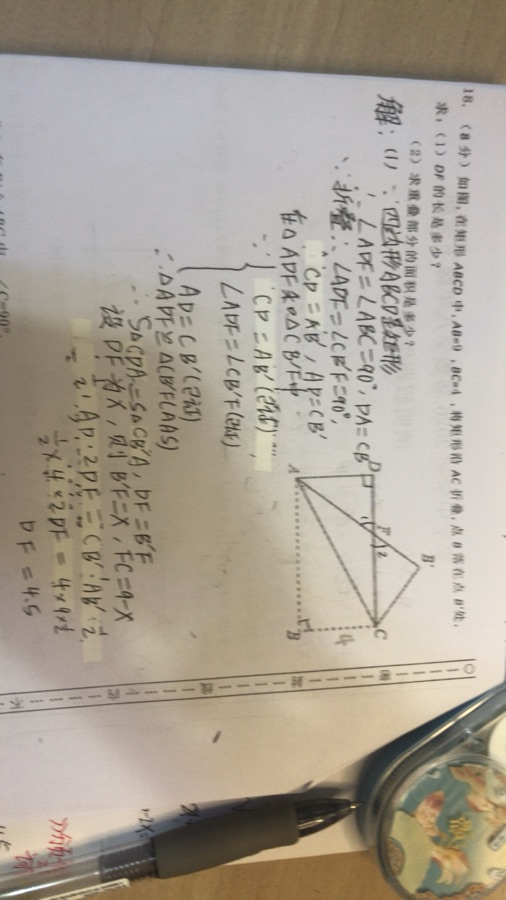 18.（8分）如图,在矩形ABCD中,AB=9,BC=4,将矩形沿AC折叠,点B落在点B'处,
求:(1)DF的长是多少?
(2)求重叠部分的面积是多少?
解:(1)∵四边形ABCD是矩形
∴∠ADF=∠ABC=90°,DA=CB
∵折叠∴∠ADF=∠CB'F=90°,
CD=AB',AD=CB'
在△ADF和△CB'F中
CD=AB'(已证)
∠ADF=∠CB'F(已证)
AD=CB'(已证)
∴△ADF≌△CB'F(AAS)
∴S△CDA=S△CB'A,DF=B'F
设DF为x,则B'F=x,FC=9-x
AD·2DF=CB'·AB'
×4×2DF=4×9×½
DF=4.5
D
F
B'
1
2
A
C
B
4